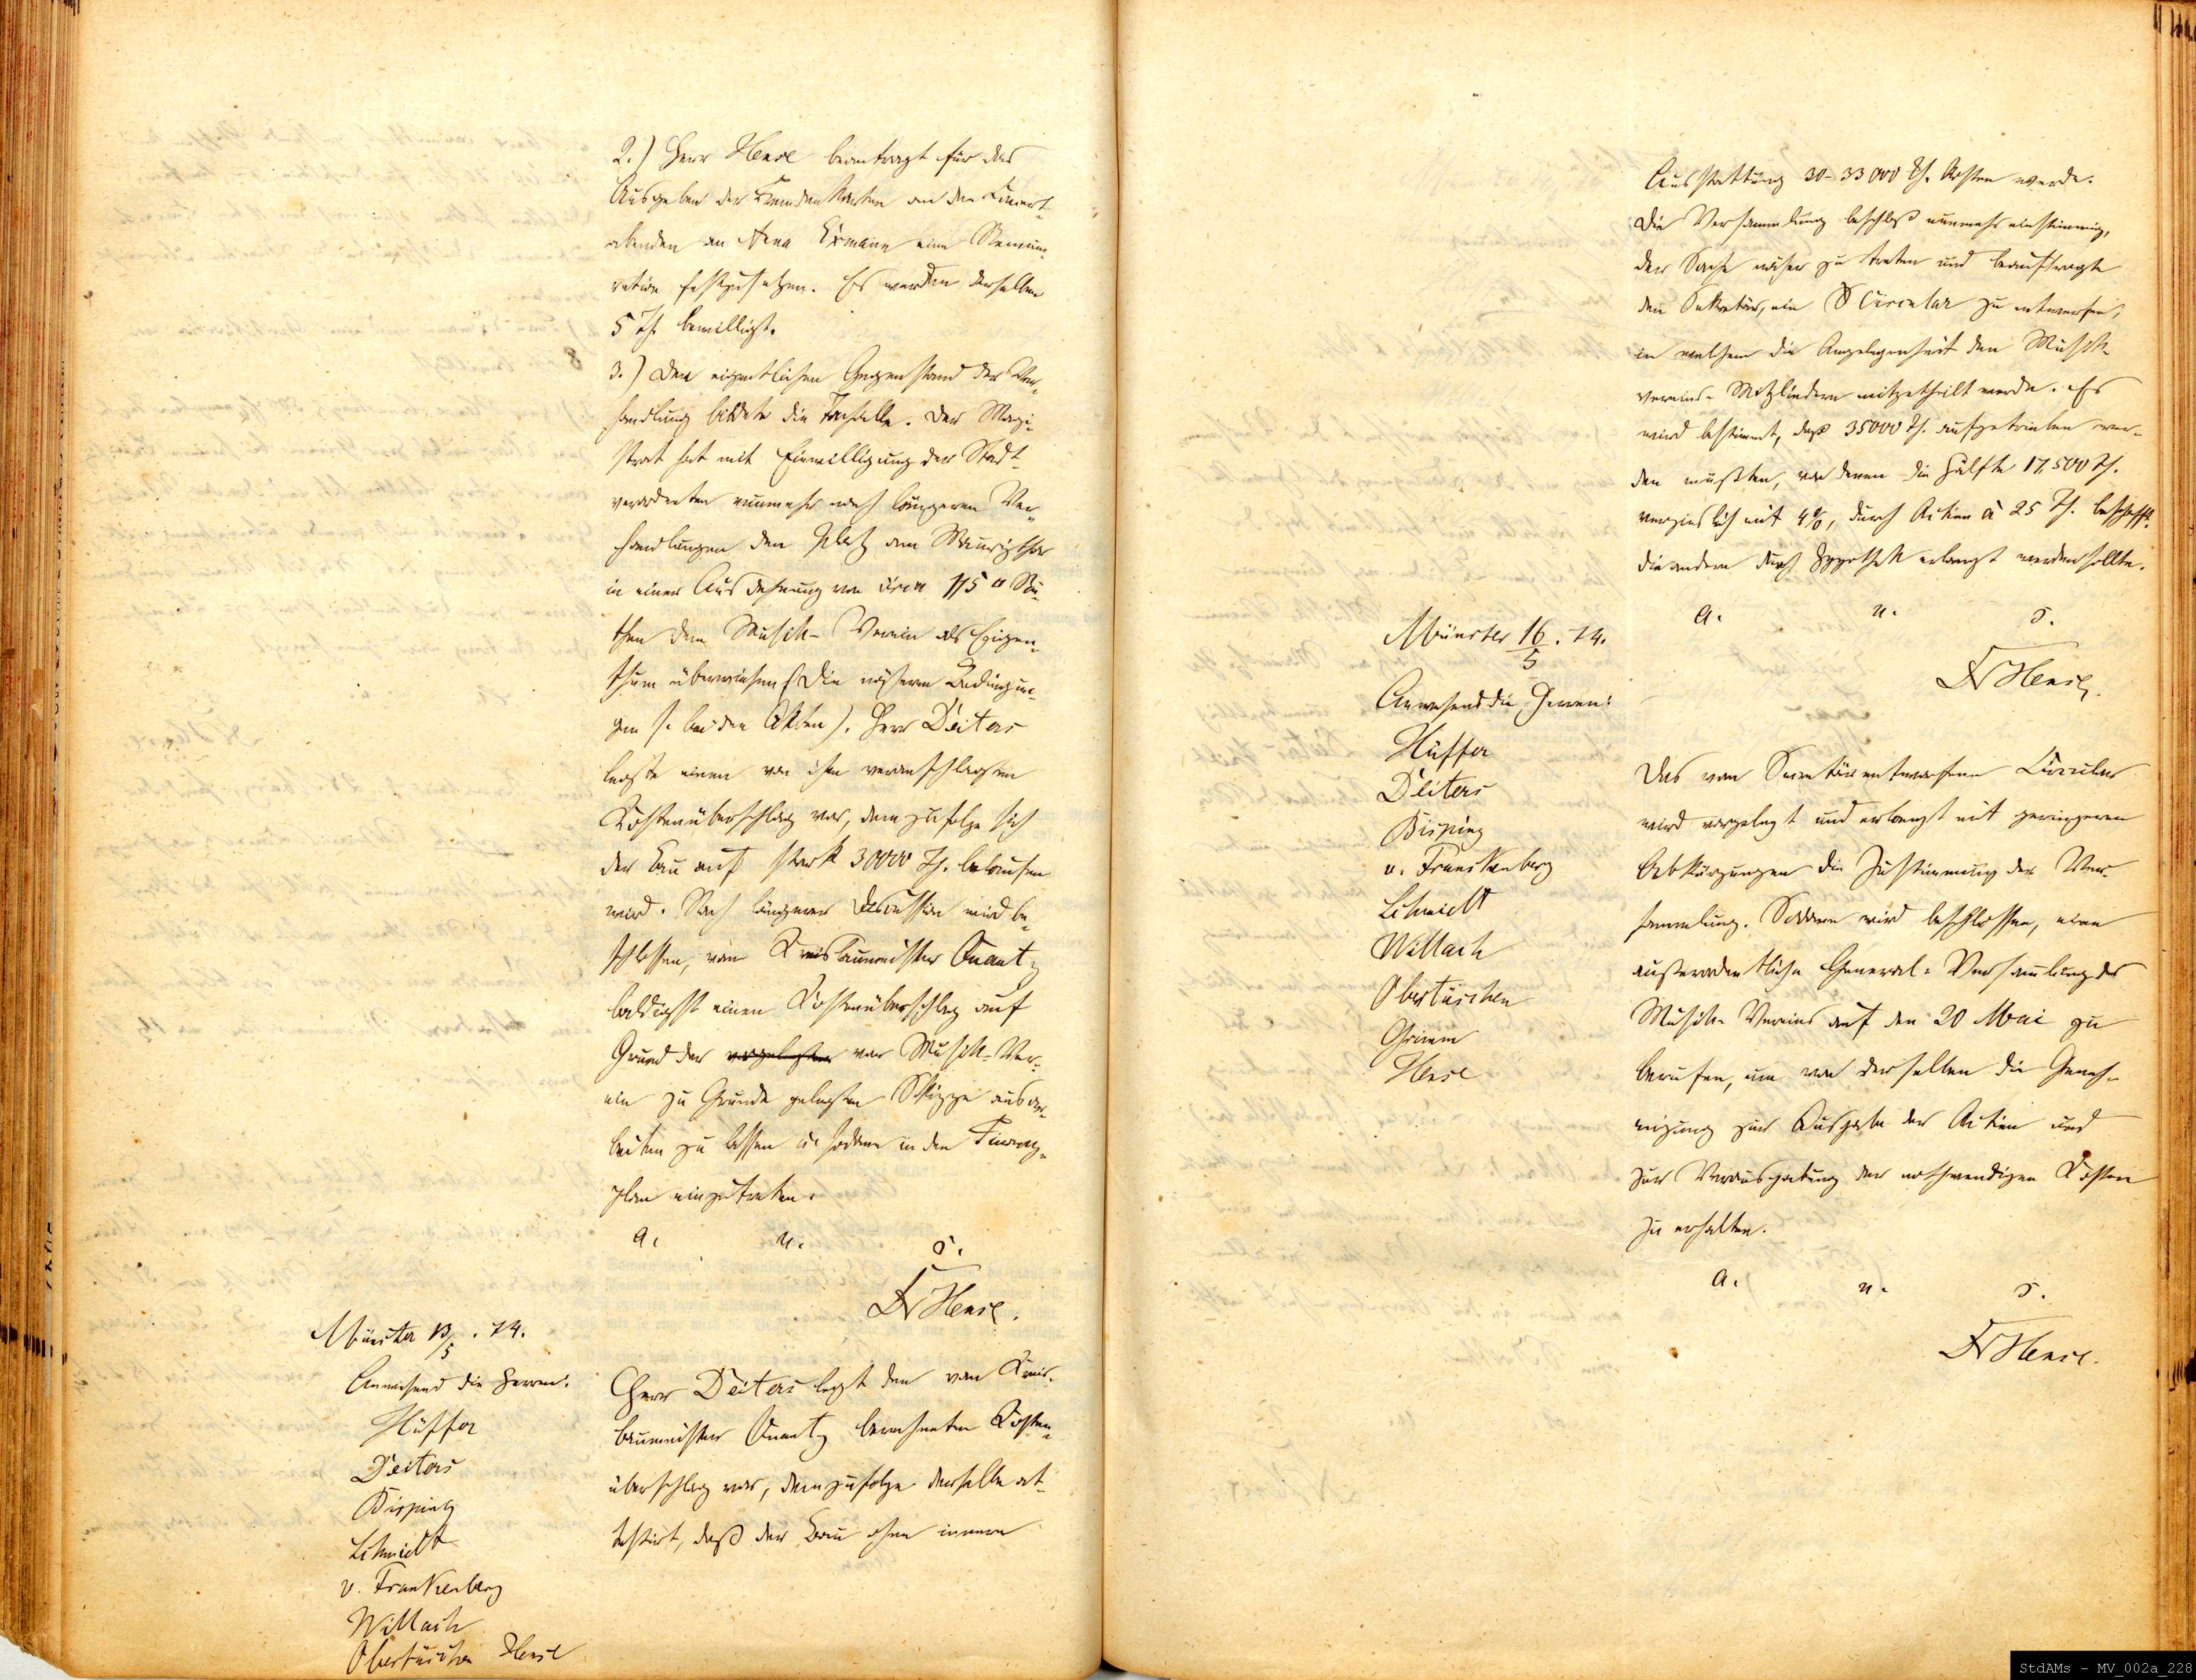 2.) Herr Hense beantragt für das
Ausgeben der Fremdenkarten an den Concert-
abenden an Anna Exmann eine Remune-
ration festzusetzen. Es werden derselben
5 Th. bewilligt.
3.) Den eigentlichen Gegenstand der Ver-
handlung bildete die Tonhalle. Der Magi-
strat hat mit Einwilligung der Stadt-
verordneten nunmehr nach längeren Ver-
handlungen den Platz am Mauritzthor
in einer Ausdehnung von circa 115 □ Ru-
then dem Musik-Verein als Eigen-
thum überwiesen (die näheren Bedingun-
gen s. bei den Akten). Herr Deiters
legte einen von ihm veranschlagten
Kostenüberschlag vor, demzufolge sich
der Bau auf stark 30000 Th. belaufen
wird. Nach längerer Discussion wird be-
schlossen, vom Kreisbaumeister Quantz
baldigst einen Kostenüberschlag auf
Grund der vorgelegten vom Musik-Ver-
ein zu Grunde gelegten Skizze ausar-
beiten zu lassen u. sodann in den Finanz-
plan einzutreten.
a. u. s.
Dr Hense.
Münster 13/5. 74.
Anwesend die Herren:
Hüffer
Deiters
Dieping
Schmidt
v. Frankenberg
Wittach
Obertüschen Hense
Herr Deiters legt den vom Kreis-
baumeister Quantz berechneten Kosten-
überschlag vor, demzufolge derselbe at-
testirt, daß der Bau ohne innere
Ausstattung 30-33000 Th. kosten werde.
Die Versammlung beschloß nunmehr einstimmig,
der Sache näher zu treten und beauftragte
den Sekretär, ein Circular zu entwerfen,
in welchem die Angelegenheit den Musik-
vereins-Mitgliedern mitgetheilt werde. Es
wird bestimmt, daß 35000 Th. aufgetrieben wer-
den müßten, von denen die Hälfte 17.500 Th.
verzinslich mit 4%, durch Actien à 25 Th. beschafft,
die andere durch Hypothek erlangt werden sollte.
a. u. s.
Dr Hense.
Münster 16/5. 74.
Anwesend die Herren:
Hüffer
Deiters
Dieping
v. Frankenberg
Schmidt
Wittach
Obertüschen
Grimm
Hense
Das vom Secretär entworfene Circular
wird vorgelegt und erlangt mit geringeren
Abkürzungen die Zustimmung der Ver-
sammlung. Sodann wird beschlossen, eine
außerordentliche General-Versammlung des
Musik-Vereins auf den 20 Mai zu
berufen, um von derselben die Geneh-
migung zur Ausgabe der Actien und
zur Verausgabung der nothwendigen Kosten
zu erhalten.
a. u. s.
Dr Hense.
StdAMs - MV_002a_228